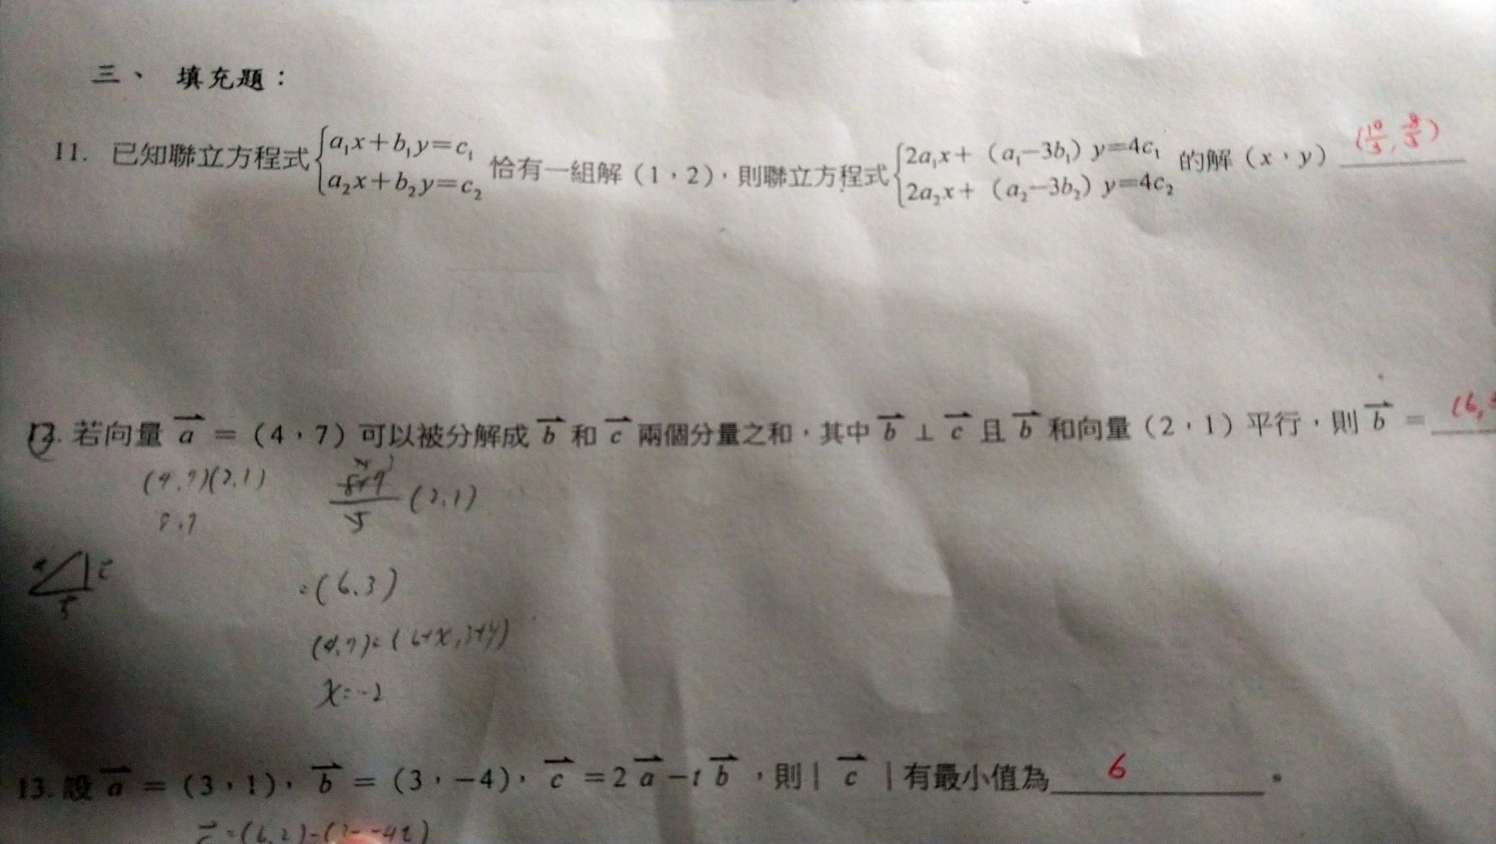 三、 填充題：
11. 已知聯立方程式 { a₁x＋b₁y＝c₁ a₂x＋b₂y＝c₂ 恰有一組解（1，2），則聯立方程式 { 2a₁x＋（a₁－3b₁）y＝4c₁ 2a₂x＋（a₂－3b₂）y＝4c₂ 的解（x，y）
12. 若向量 a⃗ ＝（4，7）可以被分解成 b⃗ 和 c⃗ 兩個分量之和，其中 b⃗ ⊥ c⃗ 且 b⃗ 和向量（2，1）平行，則 b⃗ ＝ (6,
(4,7)(2,1)
(2,1)
5
=(6,3)
(4,7)=(6+x,3+y)
x=-2
13. 設 a⃗ ＝（3，1），b⃗ ＝（3，－4），c⃗ ＝2 a⃗ －t b⃗ ，則｜ c⃗ ｜有最小值為 6 。